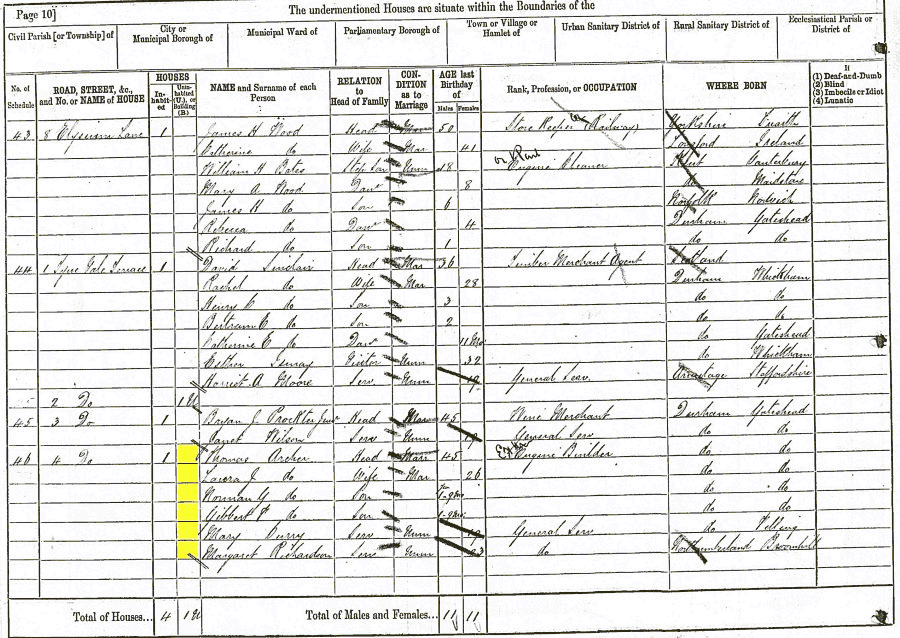 The undermentioned Houses are situate within the Boundaries of the
Page 10]
Civil Parish [or Township] of City or Municipal Borough of Municipal Ward of Parliamentary Borough of Town or Village or Hamlet of Urban Sanitary District of Rural Sanitary District of Ecclesiastical Parish or District of
No. of Schedule ROAD, STREET, &c., and No. or NAME of HOUSE HOUSES Inhabited Uninhabited (U.), or Building (B.) NAME and Surname of each Person RELATION to Head of Family CONDITION as to Marriage AGE last Birthday of Males Females Rank, Profession, or OCCUPATION WHERE BORN If (1) Deaf-and-Dumb (2) Blind (3) Imbecile or Idiot (4) Lunatic
43 8 Elysium Lane 1 James H Wood Head 50 Store Keeper (Railway) Yorkshire
Catherine do Wife Mar 41 Longford Ireland
William H Bates Step Son Unm 18 Engine Cleaner Kent Canterbury
Mary A Wood Daur 8 do Maidstone
James H do Son 6 Norfolk Norwich
Rebecca do Daur 4 Durham Gateshead
Richard do Son 1 do do
44 1 Tyne Vale Terrace 1 David Sinclair Head Mar 36 Timber Merchant Agent
Rachel do Wife Mar 28 Durham Whickham
Henry C do Son 3 do do
Bertram E do Son 2 do do
Catherine E do Daur 11 Mo do Gateshead
Esther Visitor Unm 32 do Whickham
Harriet A Moore Serv Unm 19 General Serv Armitage Staffordshire
2 Do 1U
45 3 Do 1 Bryan J. Prockter Junr Head 45 Wine Merchant Durham Gateshead
Janet Wilson Serv Unm 19 General Serv do do
46 4 Do 1 Thomas Archer Head Marr 45 Engine Builder do do
Laura J. do Wife Mar 26 do do
Norman G do Son 1-9mo do do
Gibbert F do Son 1-9mo do do
Mary Serv Unm 19 General Serv do Felling
Margaret Richardson Serv Unm 23 do Northumberland Broomhill
Total of Houses... 4 1U Total of Males and Females... 11 11